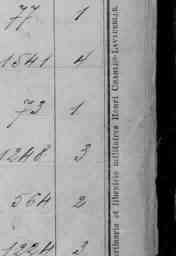 77 1
1541 4
73 1
1248 3
564 2
1224 3
et librairie militaires Henri CHARLES-LAVAUZELLE.